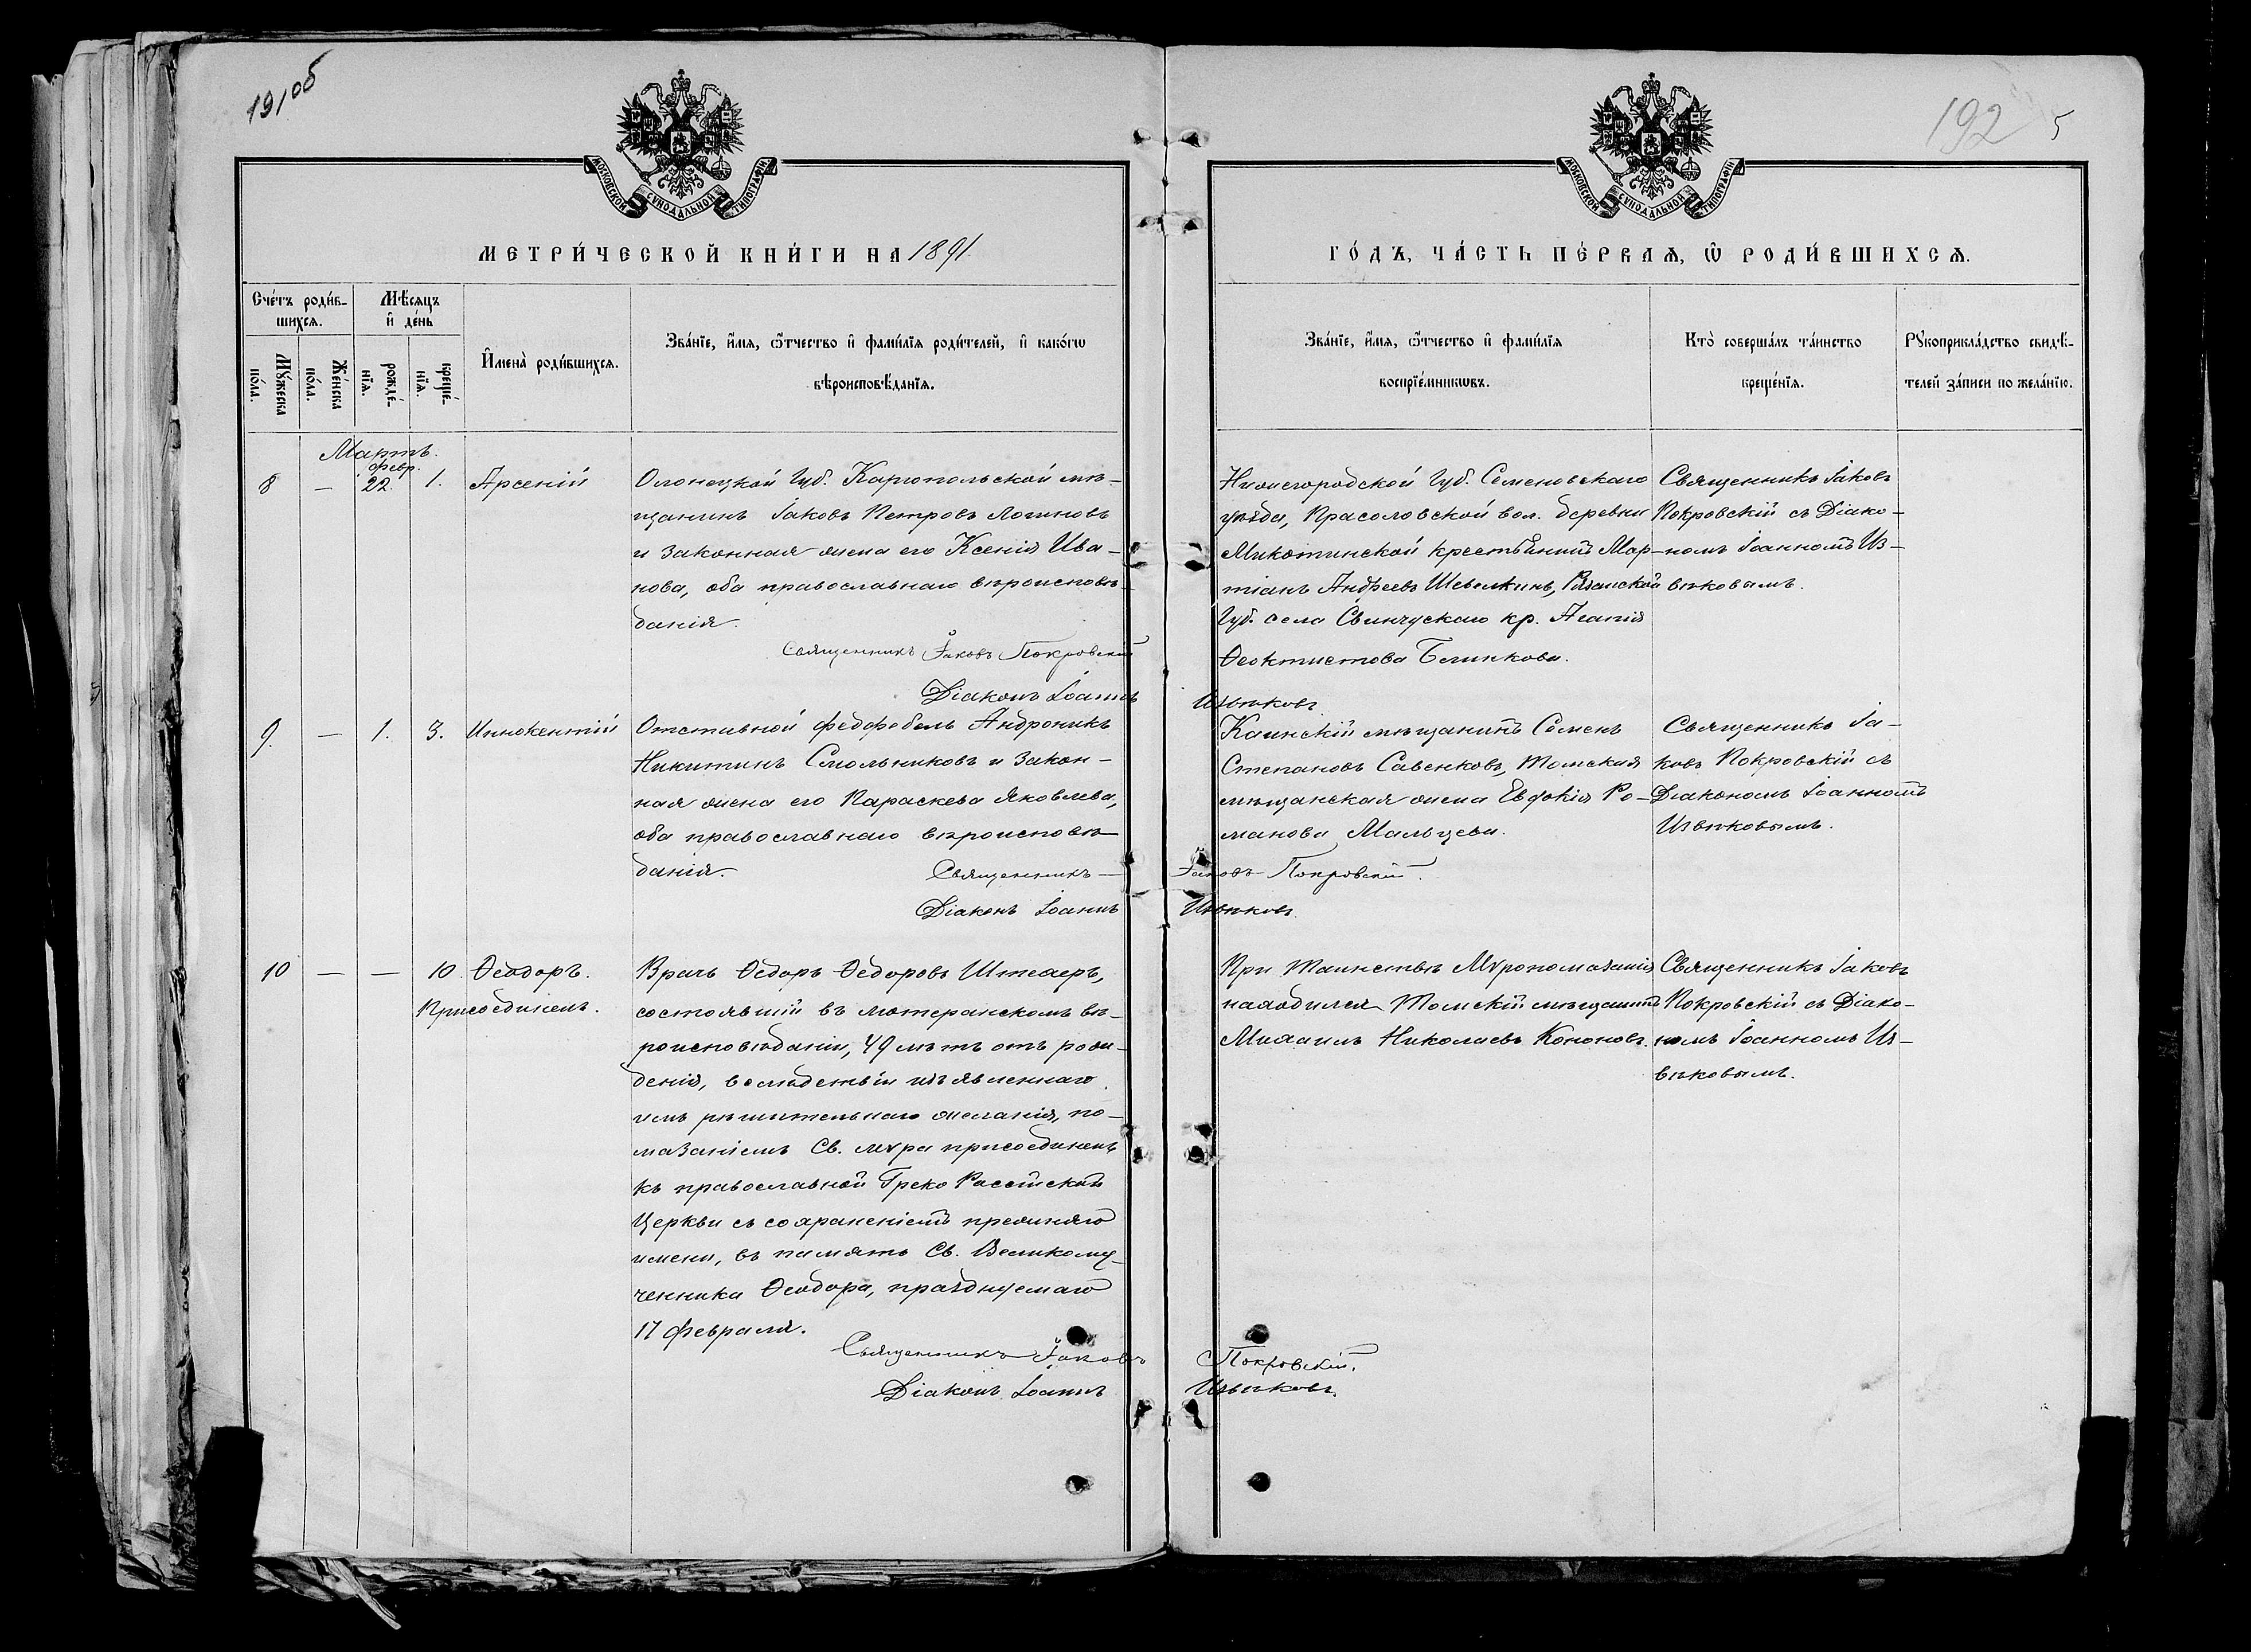 191об
192 5
МОСКОВСКОЙ СУНОДАЛЬНОЙ ТИПОГРАФІИ
МОСКОВСКОЙ СУНОДАЛЬНОЙ ТИПОГРАФІИ
МЕТРИ́ЧЕСКОЙ КНИ́ГИ НА 1891
ГО́ДЪ, ЧА́СТЬ ПЕ́РВАѦ, Ѡ҆ РОДИ́ВШИХСѦ.
Сче́тъ роди́в-
шихсѧ.
Мѣ́сѧцъ
и҆ де́нь
Мꙋ́жеска
по́ла.
Же́нска
по́ла.
рожде́-
нїѧ.
креще́-
нїѧ.
И҆мена̀ роди́вшихсѧ.
Зва́нїе, и҆́мѧ, ѻ҆́тчество и҆ фами́лїѧ роди́телей, и҆ како́гѡ
вѣроисповѣ́данїѧ.
Зва́нїе, и҆́мѧ, ѻ҆́тчество и҆ фами́лїѧ
воспрїе́мникѡвъ.
Кто̀ соверша́лъ та́инство
креще́нїѧ.
Рꙋкоприкла́дство свидѣ́-
телей за́писи по жела́нїю.
Мартъ.
8 — февр. 22. 1. Арсеній
Олонецкой Губ. Каргопольской мѣ-
щанинъ Іаковъ Петровъ Логиновъ
и законная жена его Ксенія Ива-
нова, оба православнаго вѣроисповѣ-
данія.
Священникъ Іаковъ Покровскій
Діаконъ Іоаннъ Извѣковъ
Нижегородской Губ. Семеновскаго
уѣзда, Прасоловской вол. деревни
Микотинской крестьянинъ Мар-
тіанъ Андреевъ Шевелкинъ, Рязанской
Губ. села Свинчускаго кр. Агапія
Ѳеоктистова Блинкова.
Священникъ Іаковъ
Покровскій съ Діако-
номъ Іоанномъ Из-
вѣковымъ.
9. — 1. 3. Иннокентій
Отставной фельдфебель Андроникъ
Никитинъ Смольниковъ и закон-
ная жена его Параскева Яковлева,
оба православнаго вѣроисповѣ-
данія.
Священникъ Іаковъ Покровскій.
Діаконъ Іоаннъ Извѣковъ
Каинскій мѣщанинъ Семенъ
Степановъ Савенковъ, Томская
мѣщанская жена Евдокія Ро-
манова Мальцева.
Священникъ Іа-
ковъ Покровскій съ
Діакономъ Іоанномъ
Извѣковымъ.
10 — — 10 Ѳеодоръ.
Присоединенъ.
Врачъ Ѳедоръ Ѳедоровъ Штегеръ,
состоявшій въ лютеранскомъ вѣ-
роисповѣданіи, 49 лѣтъ отъ рож-
денія, вслѣдствіи изъявленнаго
имъ рѣшительнаго желанія, по-
мазаніемъ Св. мѵра присоединенъ
къ православной Греко Россійской
Церкви съ сохраненіемъ прежняго
имени, въ память Св. Великому-
ченника Ѳеодора, празднуемаго
17 февраля.
Священникъ Іаковъ Покровскій.
Діаконъ Іоаннъ Извѣковъ.
При Таинствѣ Мѵропомазанія
находился Томскій мѣщанинъ
Михаилъ Николаевъ Кононовъ.
Священникъ Іаковъ
Покровскій съ Діако-
номъ Іоанномъ Из-
вѣковымъ.